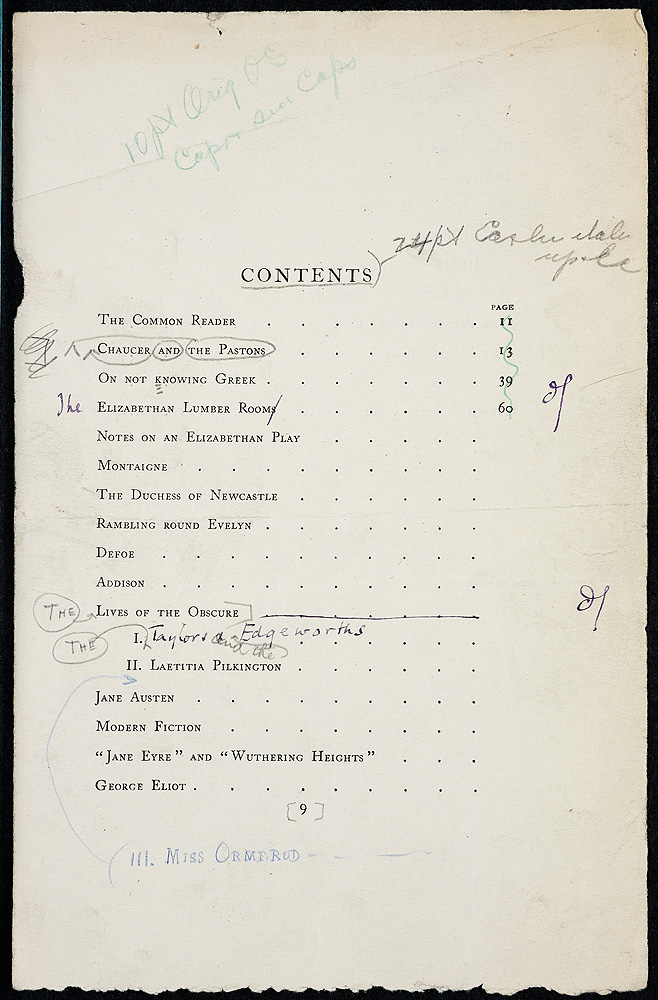 10 pt Orig OS
Caps + sm Caps
24 pt
CONTENTS
PAGE
THE COMMON READER . . . . . . . 11
CHAUCER AND THE PASTONS . . . . . . 13
ON NOT KNOWING GREEK . . . . . . . 39
The ELIZABETHAN LUMBER ROOMS . . . . . . 60
NOTES ON AN ELIZABETHAN PLAY . . . . .
MONTAIGNE . . . . . . . . .
THE DUCHESS OF NEWCASTLE . . . . . .
RAMBLING ROUND EVELYN . . . . . . .
DEFOE . . . . . . . . . .
ADDISON . . . . . . . . . .
THE LIVES OF THE OBSCURE
THE I. Taylors & Edgeworths . . . .
and the
II. LAETITIA PILKINGTON . . . . . .
JANE AUSTEN . . . . . . . . .
MODERN FICTION . . . . . . . .
“JANE EYRE” AND “WUTHERING HEIGHTS” . . .
GEORGE ELIOT . . . . . . . . .
[9]
III. MISS ORMEROD